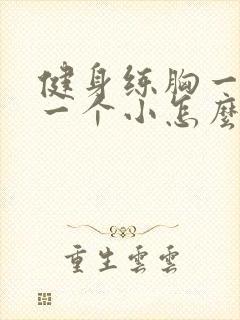 健身练胸一
一个小怎麼
重生雲雲